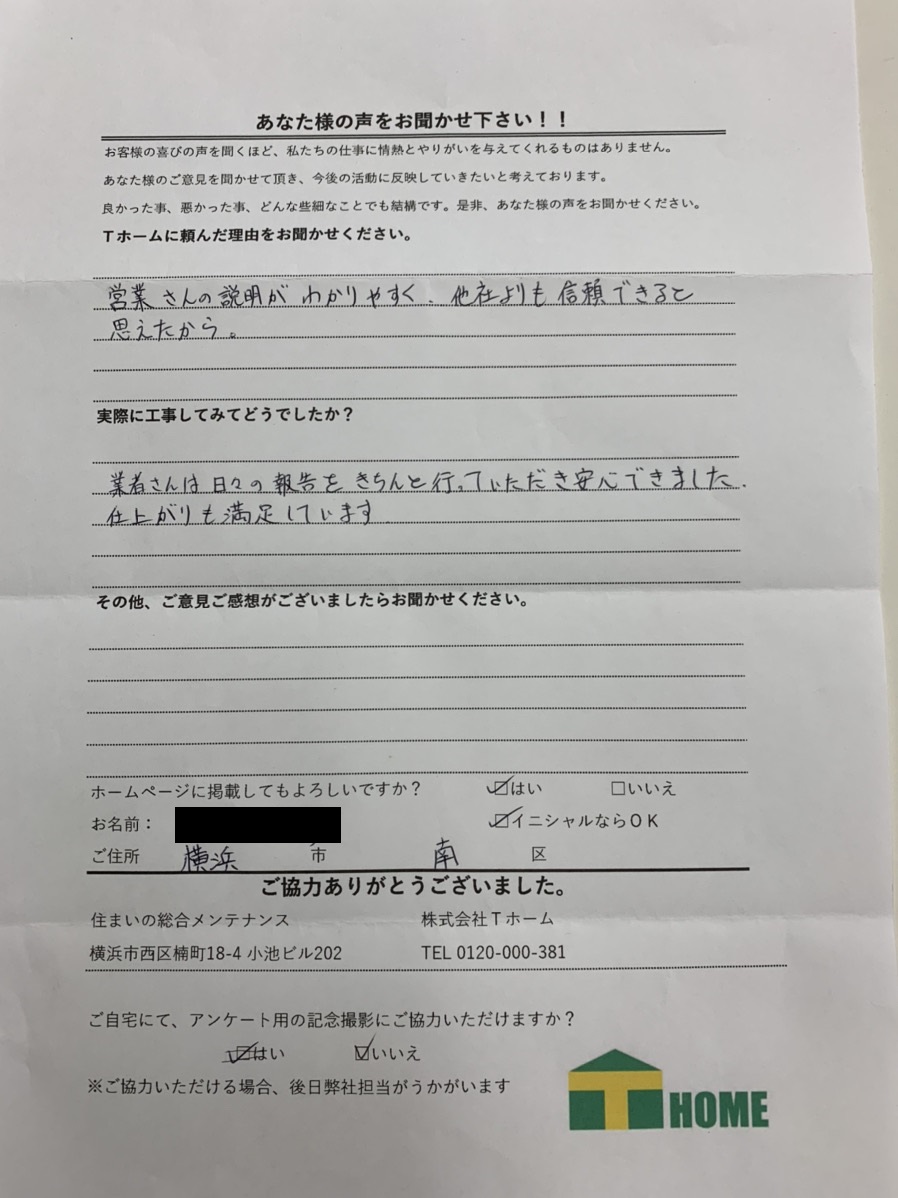 あなた様の声をお聞かせ下さい！！
お客様の喜びの声を聞くほど、私たちの仕事に情熱とやりがいを与えてくれるものはありません。
あなた様のご意見を聞かせて頂き、今後の活動に反映していきたいと考えております。
良かった事、悪かった事、どんな些細なことでも結構です。是非、あなた様の声をお聞かせください。
Ｔホームに頼んだ理由をお聞かせください。
営業さんの説明がわかりやすく、他社よりも信頼できると
思えたから。
実際に工事してみてどうでしたか？
業者さんは日々の報告をきちんと行っていただき安心できました.
仕上がりも満足しています
その他、ご意見ご感想がございましたらお聞かせください。
ホームページに掲載してもよろしいですか？ ☑はい □いいえ
お名前： ☑イニシャルならＯＫ
ご住所 横浜 市 南 区
ご協力ありがとうございました。
住まいの総合メンテナンス 株式会社Ｔホーム
横浜市西区楠町18-4 小池ビル202 TEL 0120-000-381
ご自宅にて、アンケート用の記念撮影にご協力いただけますか？
☑はい ☑いいえ
※ご協力いただける場合、後日弊社担当がうかがいます
T HOME